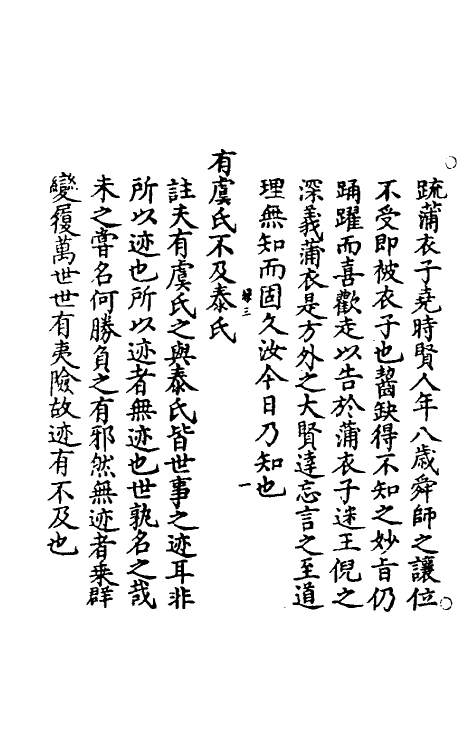 疏蒲衣子堯時賢人年八歳舜師之讓位
不受即被衣子也齧缺得不知之妙旨仍
踊躍而喜歡走以告於蒲衣子迷王倪之
深義蒲衣是方外之大賢達忘言之至道
理無知而固久汝今日乃知也
有虞氏不及泰氏
註夫有虞氏之與泰氏皆世事之迹耳非
所以迹也所以迹者無迹也世孰名之哉
未之嘗名何勝負之有邪然無迹者乗群
變履萬世世有夷險故迹有不及也